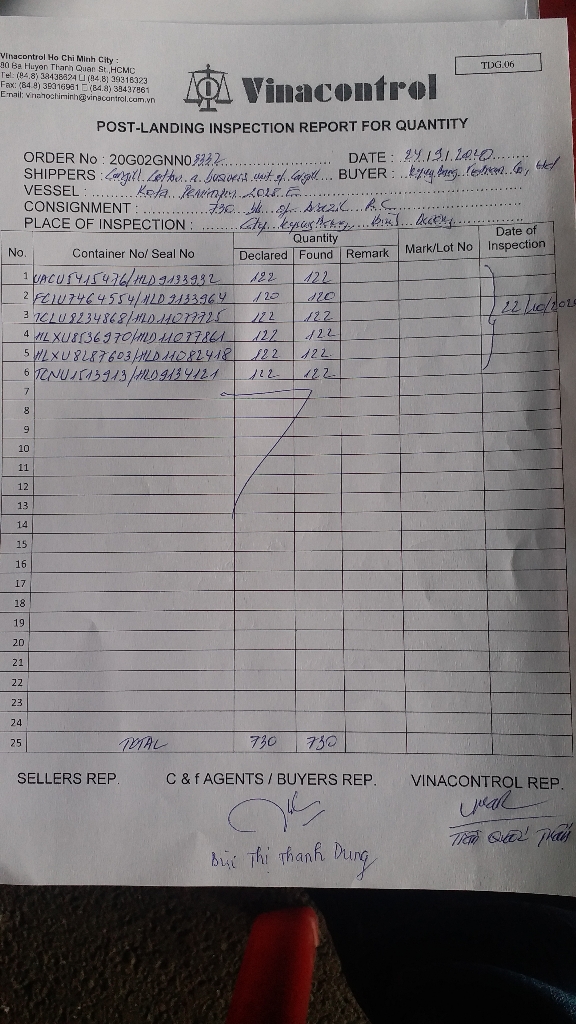 Vinacontrol Ho Chi Minh City :
80 Ba Huyen Thanh Quan St.,HCMC
Tel: (84.8) 38438624 (84.8) 39316323
Fax: (84.8) 39316961 (84.8) 38437861
Email: vinahochiminh@vinacontrol.com.vn
TDG.06
Vinacontrol
POST-LANDING INSPECTION REPORT FOR QUANTITY
ORDER No : 20G02GNN0 DATE : 2020
SHIPPERS : Cargill Cotton a business unit of Cargill BUYER : Co., Ltd
VESSEL : Kota 2025 E
CONSIGNMENT : 730 of Brazil R.C
PLACE OF INSPECTION : Cty
No. Container No/ Seal No Quantity Mark/Lot No Date of Inspection
Declared Found Remark
1 UACU5415476/HLD9133932 122 122
2 FCIU7464554/HLD9133964 120 120
3 TCLU8234868/HLD11077725 122 122 22/10/2020
4 HLXU8536970/HLD11077861 122 122
5 HLXU8287603/HLD11082418 122 122
6 TCNU1513913/HLD9134121 122 122
7
8
9
10
11
12
13
14
15
16
17
18
19
20
21
22
23
24
25 TOTAL 730 730
SELLERS REP. C & f AGENTS / BUYERS REP. VINACONTROL REP.
Bùi Thị Thanh Dung